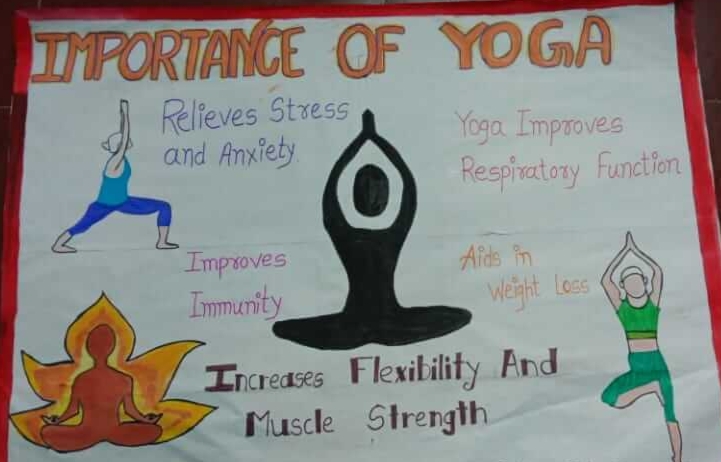 IMPORTANCE OF YOGA
Relieves Stress
and Anxiety.
Yoga Improves
Respiratory Function
Improves
Immunity
Aids in
Weight Loss
Increases Flexibility And
Muscle Strength